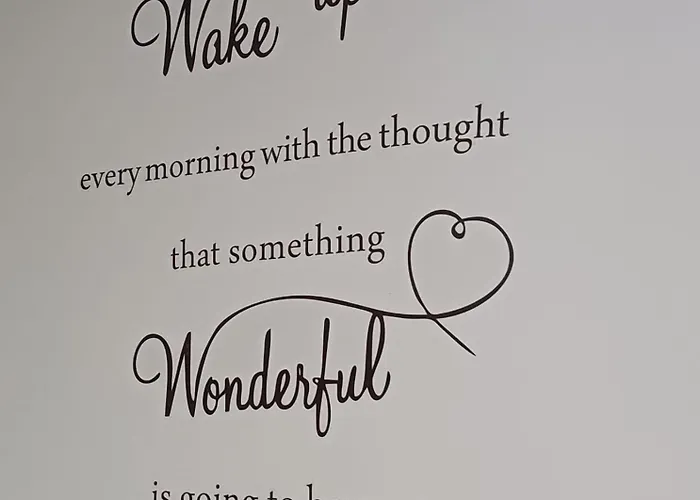 Wake up
every morning with the thought
that something
Wonderful
is going to